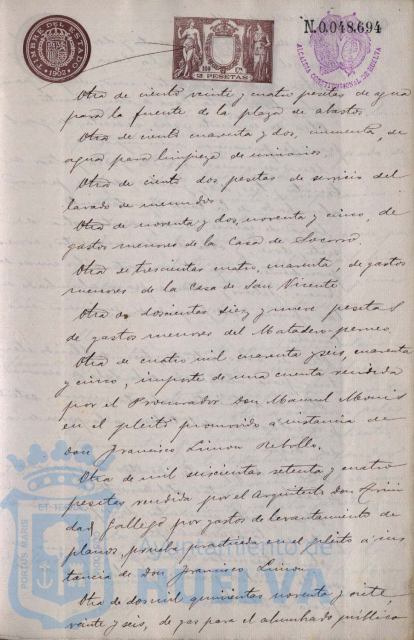 TIMBRE DEL ESTADO
1902
2 PESETAS
N. 0.048.694
ALCALDIA CONSTITUCIONAL DE HUELVA
Otra de ciento veinte y cuatro pesetas de agua
para la fuente de la plaza de abastos
Otra de ciento cuarenta y dos, cincuenta, de
agua para limpieza de urinarios
Otra de ciento dos pesetas de servicio del
lavado de menudos
Otra de noventa y dos, noventa y cinco, de
gastos menores de la Casa de Socorro
Otra de trescientas cuatro, cuarenta, de gastos
menores de la Casa de San Vicente
Otra de doscientas diez y nueve pesetas
de gastos menores del Matadero
Otra de cuatro mil cuarenta y seis, cuarenta
y cinco, importe de una cuenta rendida
por el Procurador Don Manuel
en el pleito promovido a instancia de
Don Francisco Limon Rebollo.
Otra de mil seiscientas setenta y cuatro
pesetas rendida por el Arquitecto Don Trini
dad Gallego por gastos de levantamiento de
planos, prueba practicada en el pleito a ins
tancia de Don Francisco Limon
Otra de dos mil quinientas noventa y siete,
veinte y seis, de gas para el alumbrado público
PORTUS MARIS
Ayuntamiento de
HUELVA